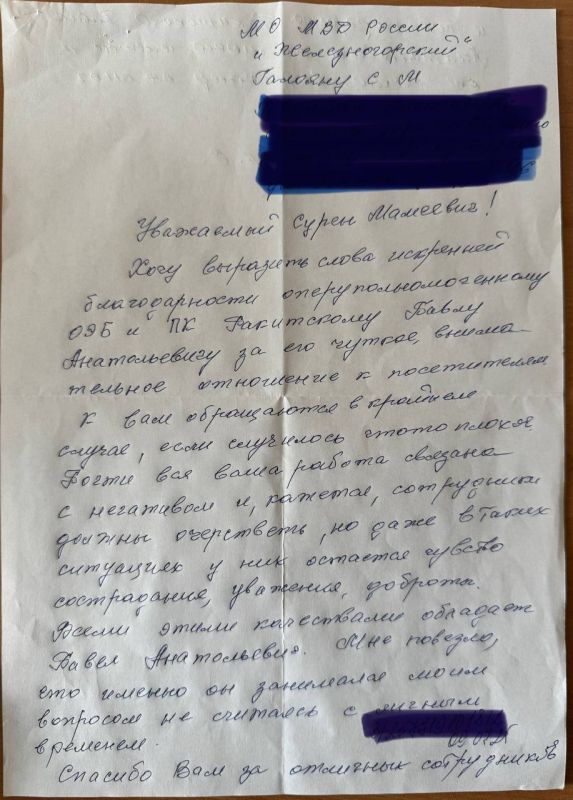 МО МВД России
"Железногорский"
Галояну С. М
Уважаемый Сурен Мамеевич!
Хочу выразить слова искренней
благодарности оперуполномоченному
ОЭБ и ПК Ракитскому Павлу
Анатольевичу за его чуткое, внима-
тельное отношение к посетителям
К вам обращаются в крайнем
случае, если случилось чтото плохое.
Почти вся ваша работа связана
с негативом и, кажется, сотрудники
должны очерстветь, но даже в таких
ситуациях у них остается чувство
сострадания, уважения, доброты.
Всеми этими качествами обладает
Павел Анатольевич. Мне повезло,
что именно он занимался моим
вопросом не считаясь с личным
временем.
Спасибо Вам за отличных сотрудников